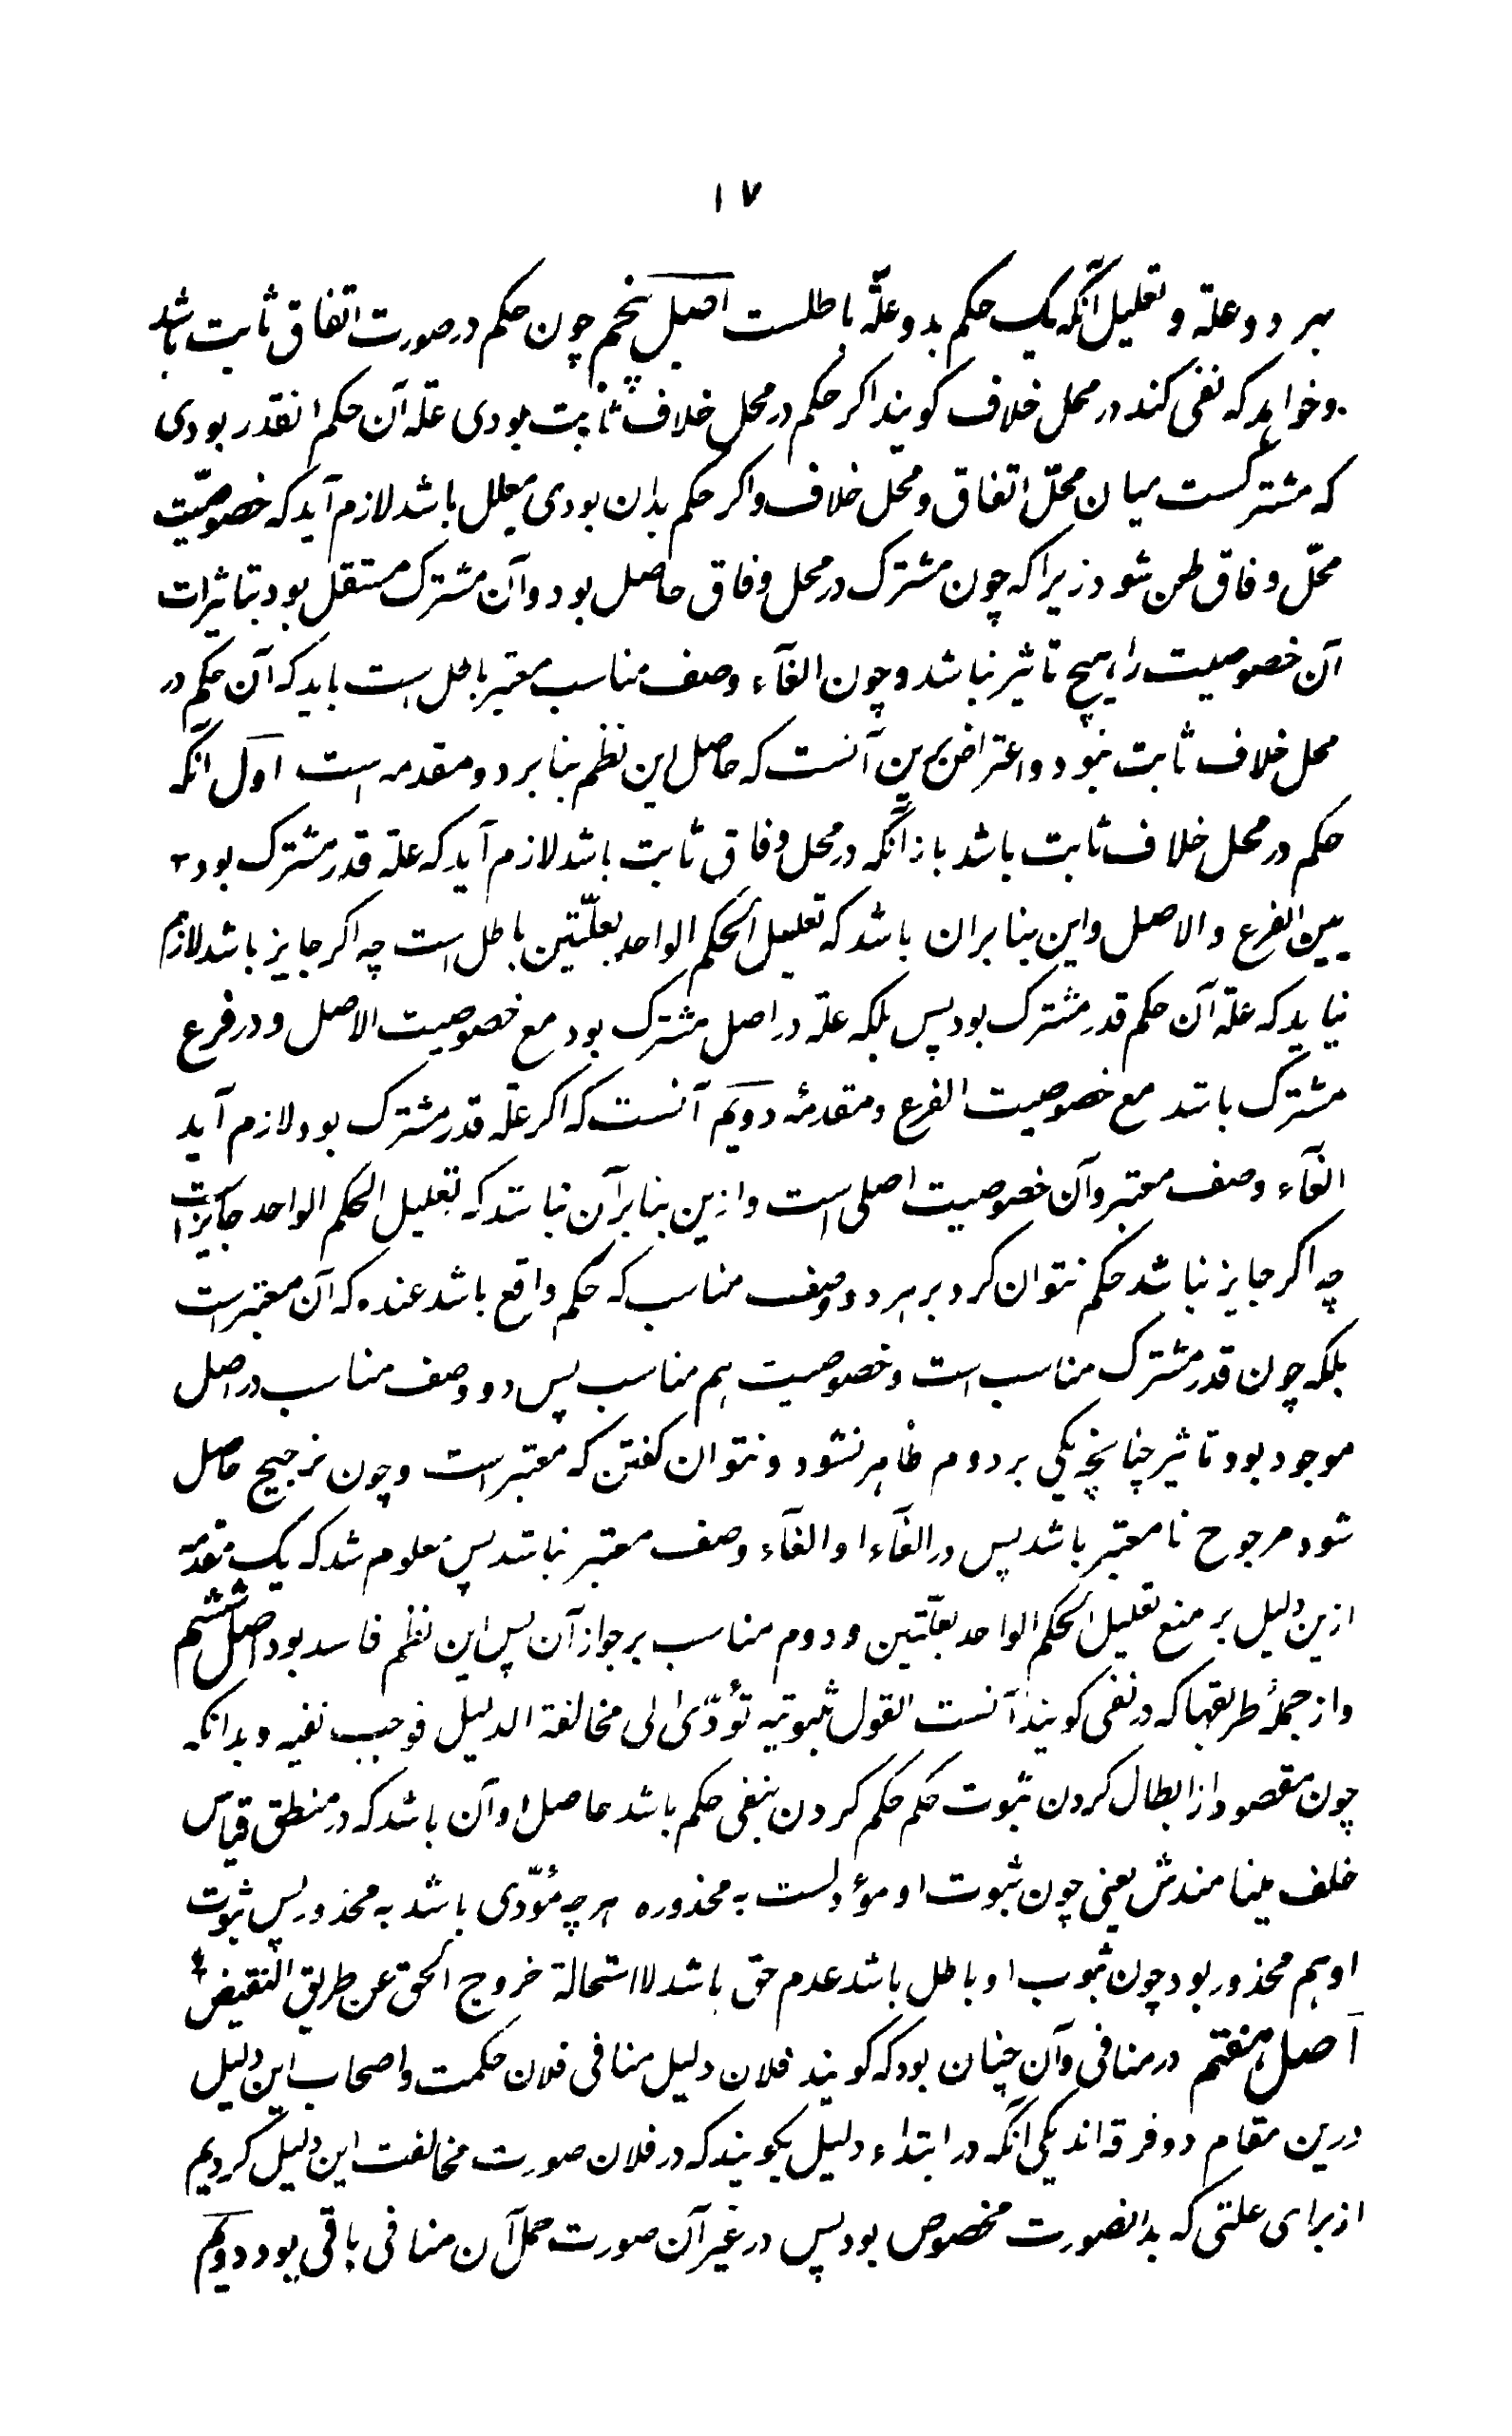 ۱۷
بهر دو علة و تعلیل آنکه یک حکم بدو علّه باطلست اصل پنجم چون حکم در صورت اتفاق ثابت باشد
و خواهد که نفی کند در محل خلاف کویند اکر حکم در محل خلاف ثابت بودی علّة آن حکم انقدر بودی
که مشترکست میان محلّ اتفاق و محل خلاف و اکر حکم بدان بودی معلل باشد لازم آید که خصوصیّت
محلّ وفاق طعن شود زیرا که چون مشترک در محل وفاق حاصل بود و آن مشترک مستقل بود بتاثیرات
آن خصوصیت را هیچ تاثیر نباشد و چون الغآء وصف مناسب معتبر باطل است باید که آن حکم در
محل خلاف ثابت نبود و اعتراض برین آنست که حاصل این نظم بنا بر دو مقدمه است اوّل آنکه
حکم در محل خلاف ثابت باشد بازآنکه در محل وفاق ثابت باشد لازم آید که علة قدر مشترک بود
بین الفرع والاصل و این بنا بران باشد که تعلیل الحکم الواحد بعلّتین باطل است چه اکر جایز باشد لازم
نیاید که علّة آن حکم قدر مشترک بود پس بلکه علّة در اصل مشترک بود مع خصوصیت الاصل و در فرع
مشترک باشد مع خصوصیت الفرع و مقدمهٔ دویم آنست که اکر علّة قدر مشترک بود لازم آید
الغآء وصف معتبر و آن خصوصیت اصلی است و ازین بنا بر آن نباشد که تعلیل الحکم الواحد جایزاست
چه اکر جایز نباشد حکم نتوان کرد بر هر دو وصف مناسب که حکم واقع باشد عنده که آن معتبر است
بلکه چون قدر مشترک مناسب است و خصوصیت هم مناسب پس دو وصف مناسب در اصل
موجود بود تاثیر چنانچه یکی بر دوم ظاهر نشود و نتوان کفتن که معتبر است و چون ترجیح حاصل
شود مرجوح نامعتبر باشد پس در الغآء او الغآء وصف معتبر نباشد پس معلوم شد که یک مقدمّه
ازین دلیل بر منع تعلیل الحکم الواحد بعلّتین و دوم مناسب بر جواز آن پس این نظم فاسد بود اصل ششم
و از جملهٔ طریقها که در نفی کویند آنست القول بثبوتیه تؤدّی الی مخالفة الدلیل فوجب نفیه و بدانکه
چون مقصود از ابطال کردن ثبوت حکم حکم کردن بنفی حکم باشد حاصل او آن باشد که در منطق قیاس
خلف مینامندش یعنی چون ثبوت او مؤدلست به محذوره هر چه مؤدّی باشد به محذور پس ثبوت
او هم محذور بود چون ثبوب او باطل باشد عدم حق باشد لااستحالة خروج الحق عن طریق النقیض
اصل هفتم در منافی و آن چنان بود که کویند فلان دلیل منافی فلان حکمت و اصحاب این دلیل
درین مقام دو فرقه اند یکی آنکه در ابتداء دلیل بکویند که در فلان صورت مخالفت این دلیل کردیم
از برای علتی که بدانصورت مخصوص بود پس در غیر آن صورت حمل آن منافی باقی بود دویم